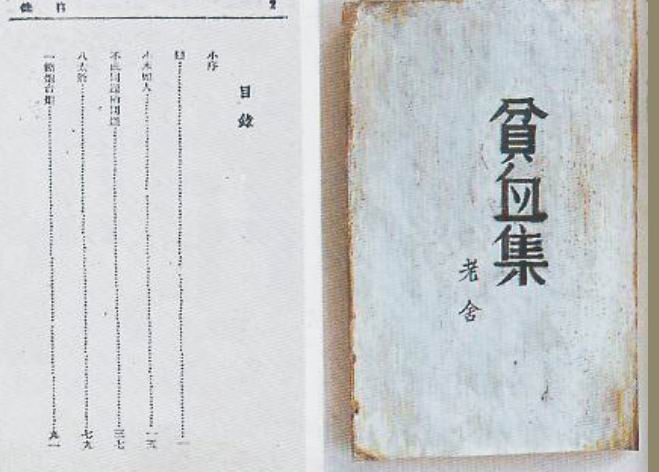 目錄
小序
戀……一
小木頭人……一五
不成問題的問題……三七
八太爺……七九
一筒炮台煙……九一
貧血集
老舍